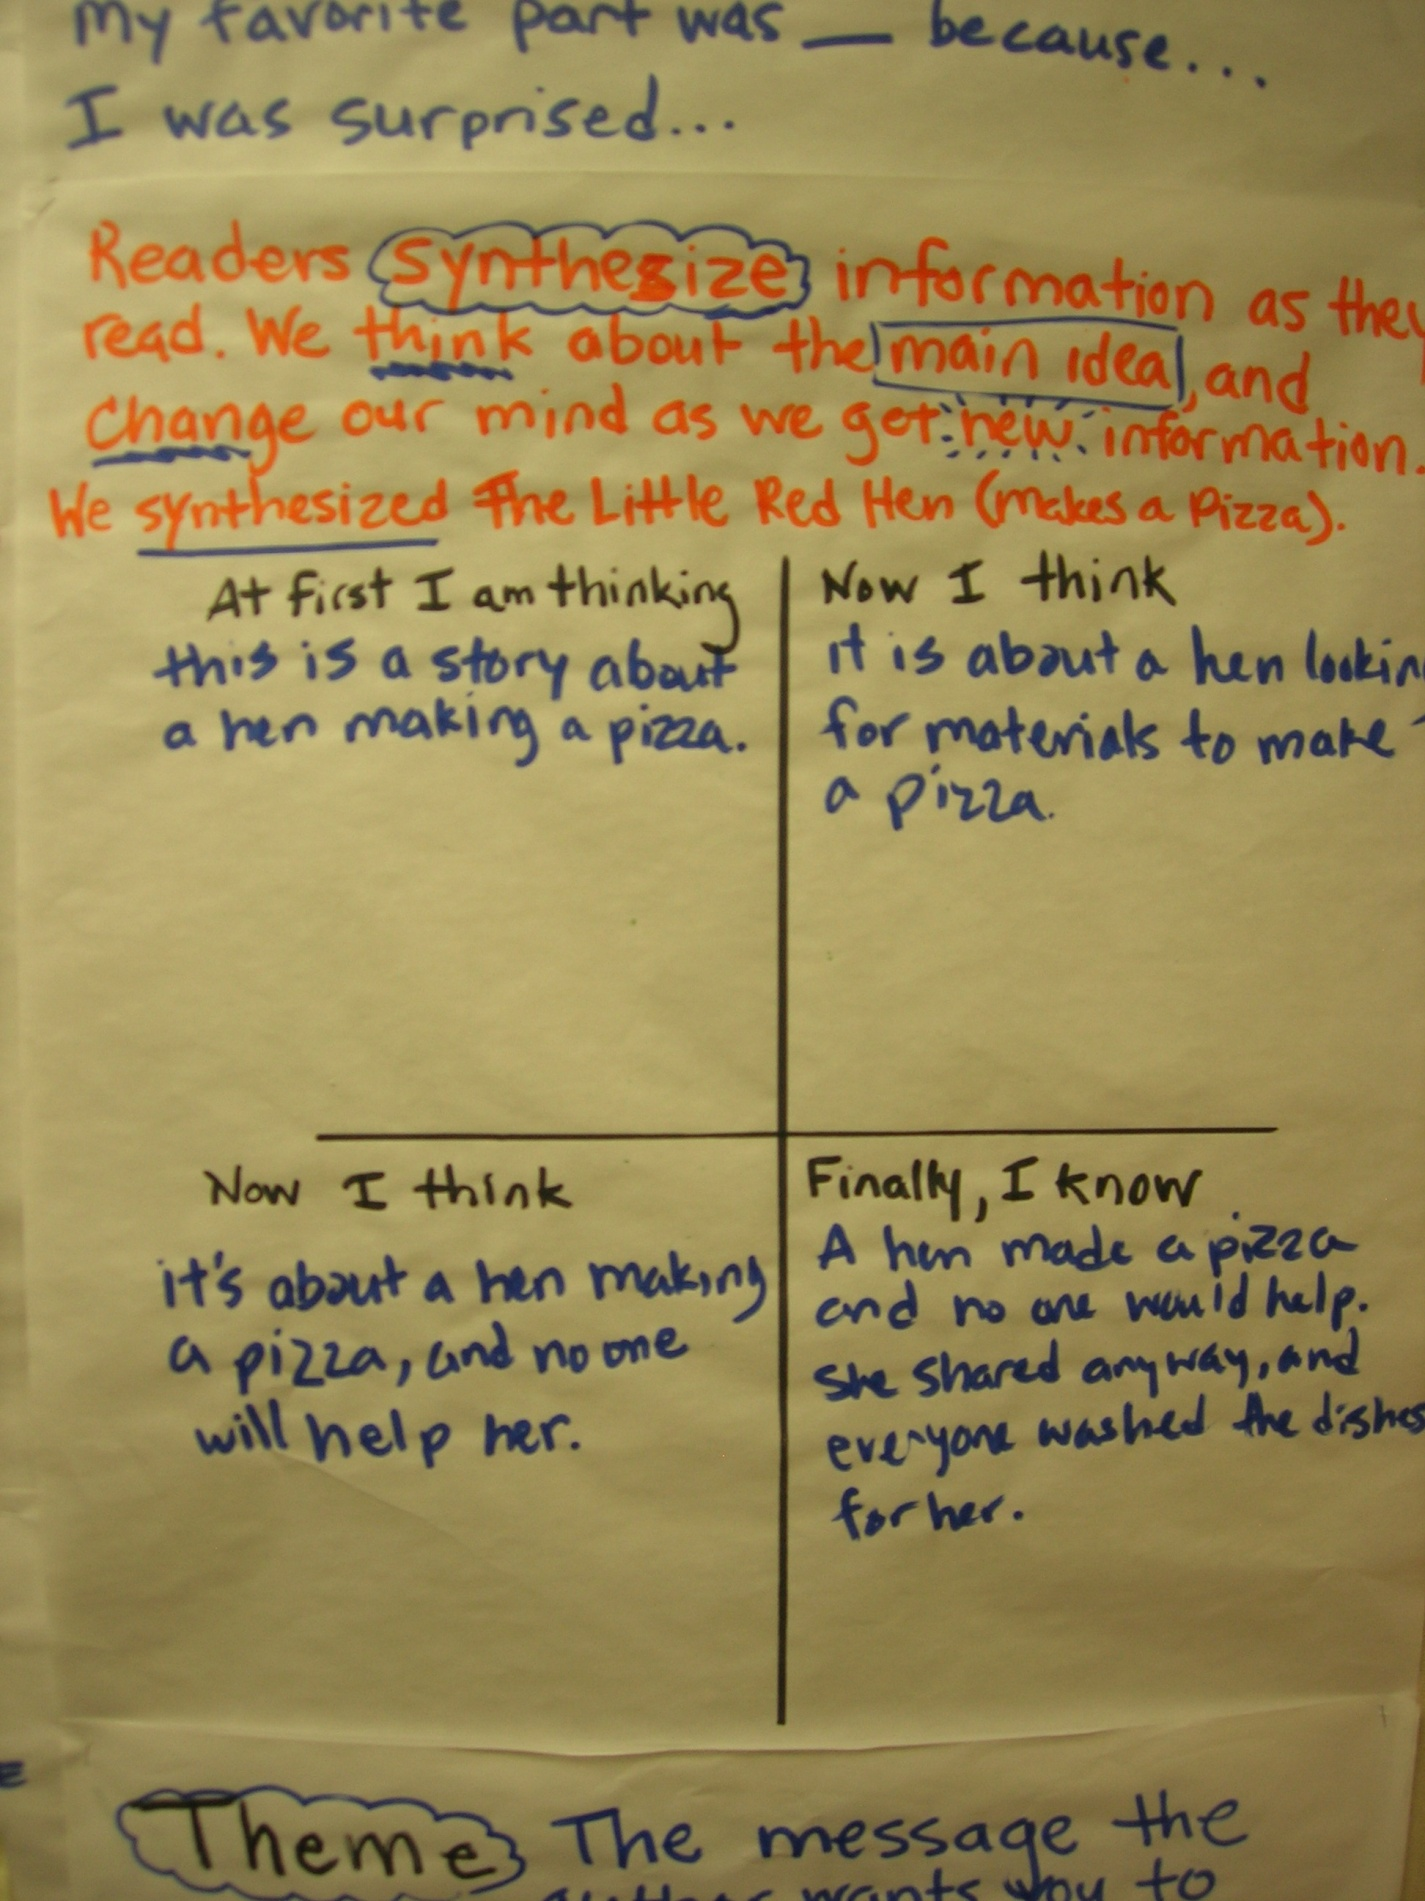 My favorite part was __ because...
I was surprised...
Readers synthesize information as they
read. We think about the main idea, and
change our mind as we get new information.
We synthesized The Little Red Hen (makes a Pizza).
At first I am thinking
this is a story about
a hen making a pizza.
Now I think
it is about a hen lookin
for materials to make
a pizza.
Now I think
it's about a hen making
a pizza, and no one
will help her.
Finally, I know
A hen made a pizza
and no one would help.
She shared anyway, and
everyone washed the dishes
for her.
Theme The message the
author wants you to